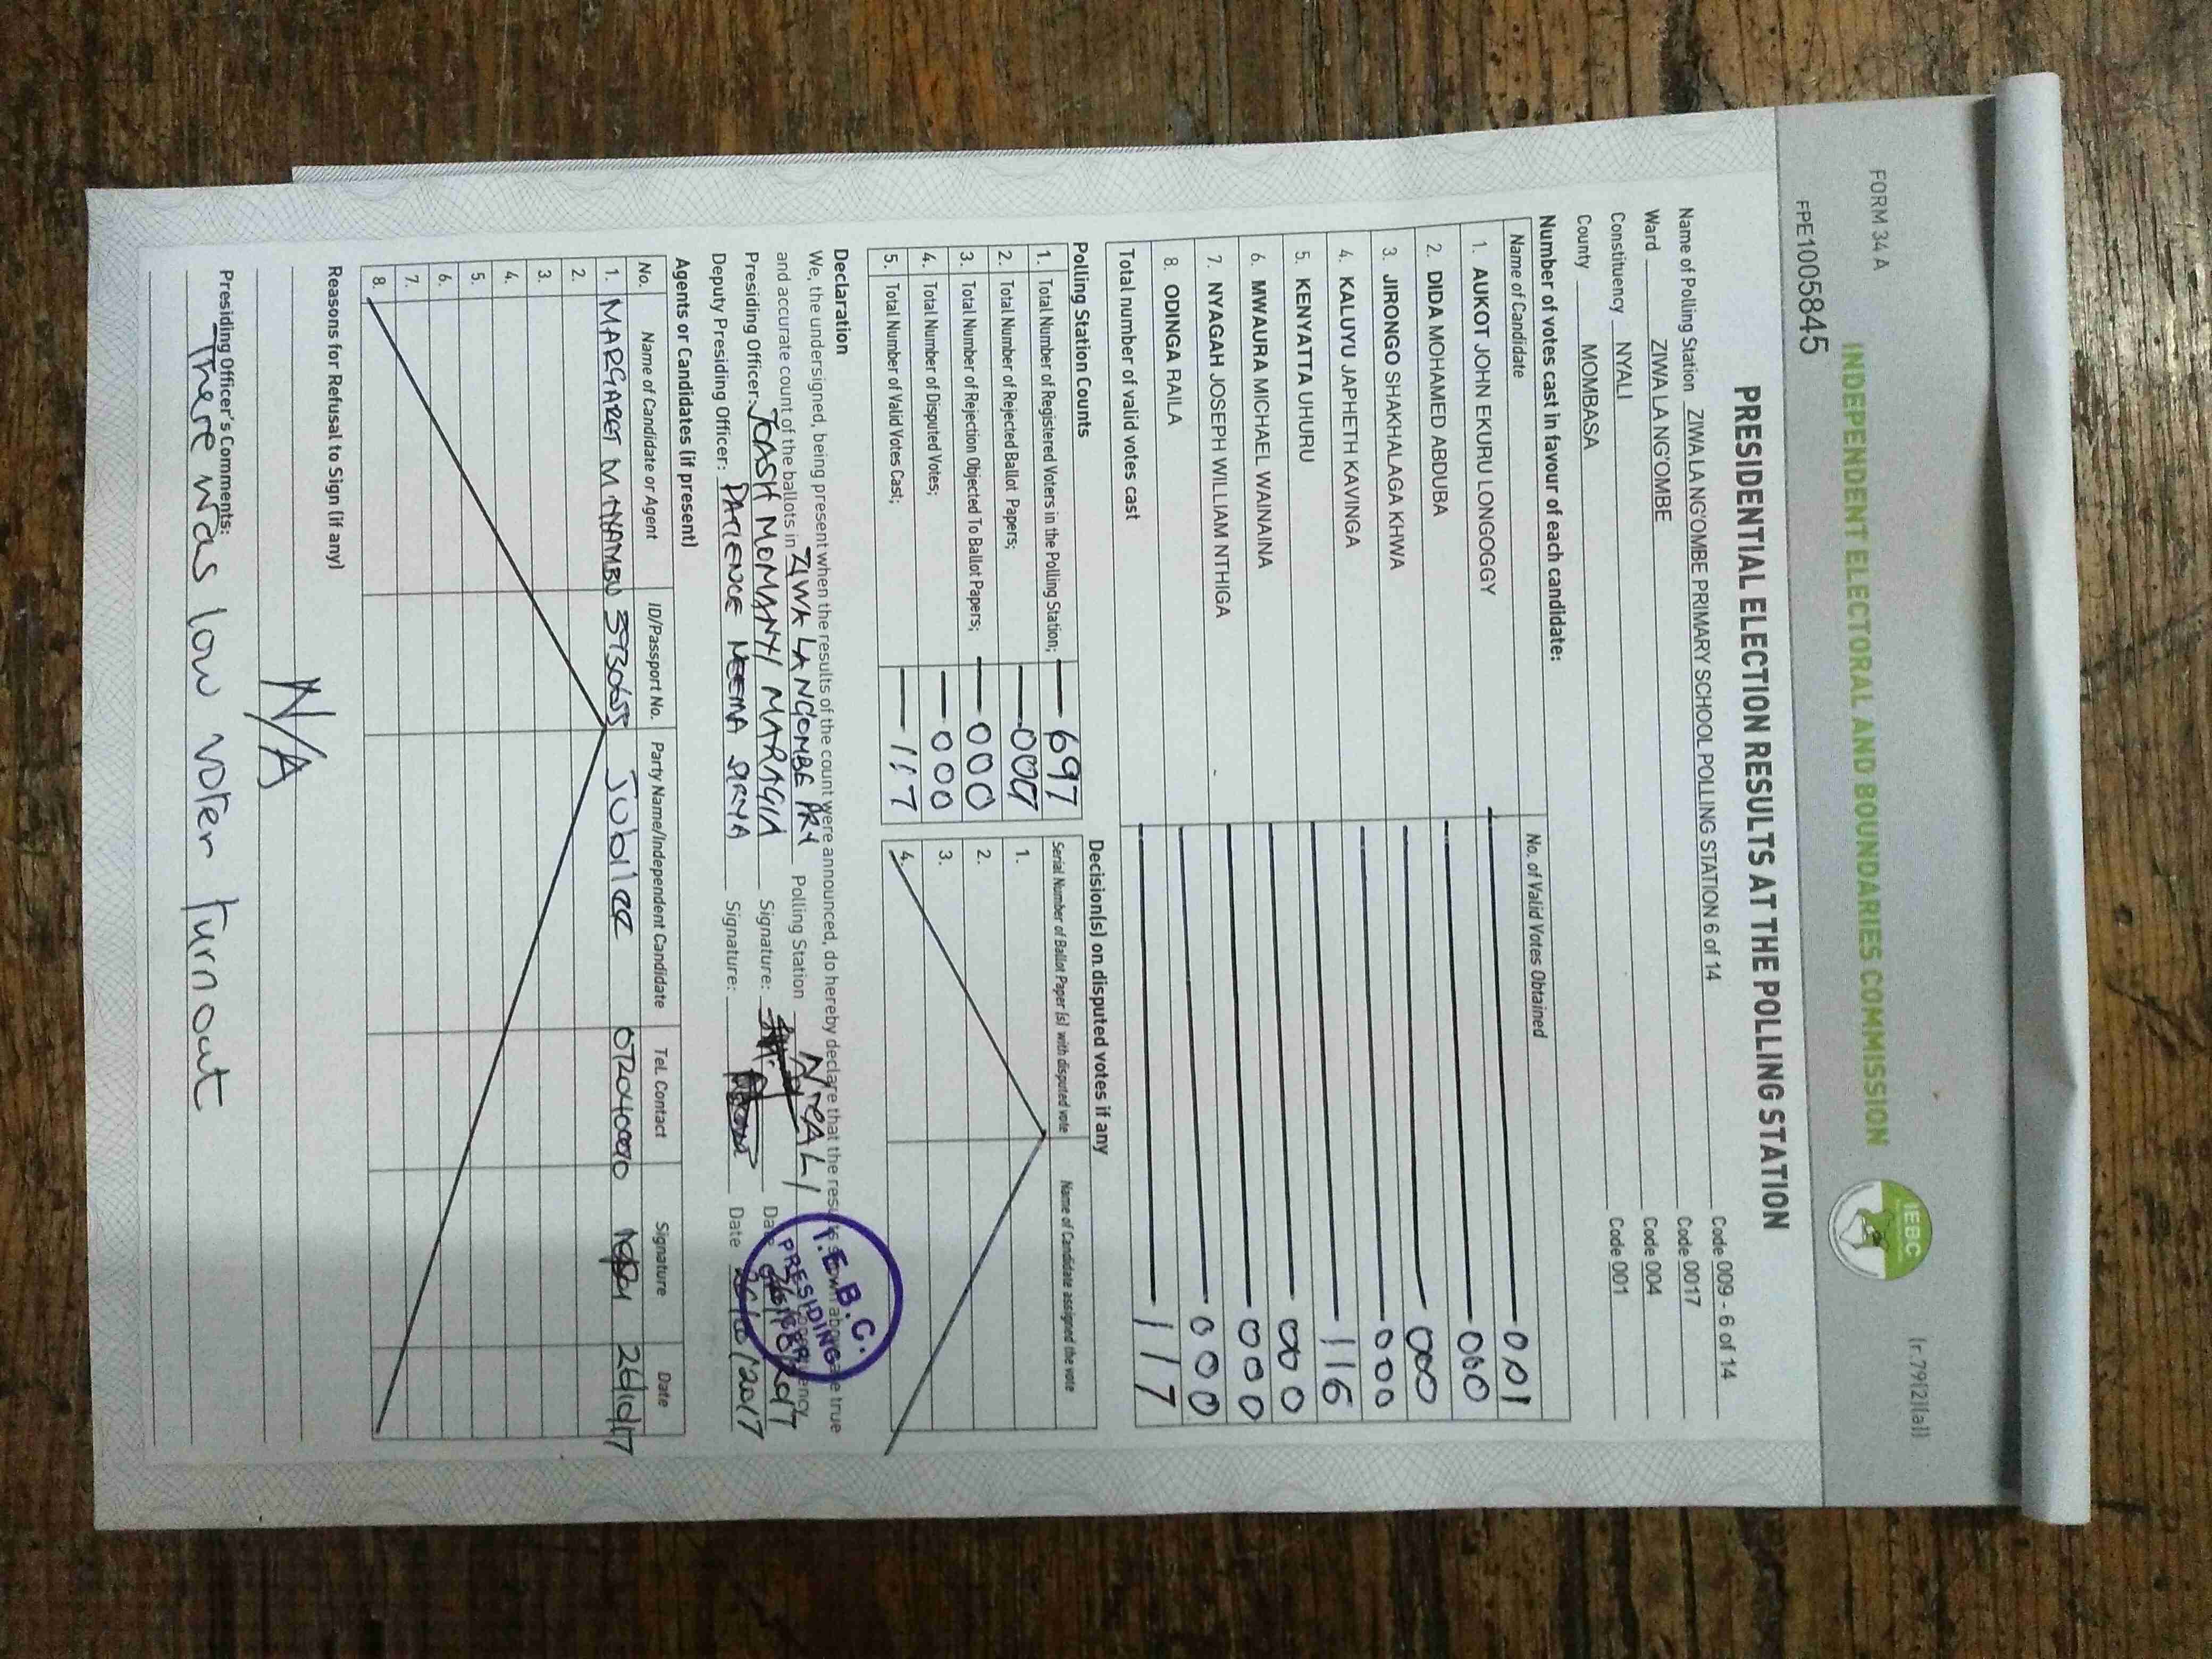 FORM 34 A
(r.79(2)(a))
INDEPENDENT ELECTORAL AND BOUNDARIES COMMISSION
IEBC
FPE1005845
PRESIDENTIAL ELECTION RESULTS AT THE POLLING STATION
Name of Polling Station ZIWA LA NG'OMBE PRIMARY SCHOOL POLLING STATION 6 of 14 Code 009 - 6 of 14
Ward ZIWA LA NG'OMBE Code 0017
Constituency NYALI Code 004
County MOMBASA Code 001
Number of votes cast in favour of each candidate:
Name of Candidate No. of Valid Votes Obtained
1. AUKOT JOHN EKURU LONGOGGY 001
2. DIDA MOHAMED ABDUBA 000
3. JIRONGO SHAKHALAGA KHWA 000
4. KALUYU JAPHETH KAVINGA 000
5. KENYATTA UHURU 116
6. MWAURA MICHAEL WAINAINA 000
7. NYAGAH JOSEPH WILLIAM NTHIGA 000
8. ODINGA RAILA 000
Total number of valid votes cast 117
Polling Station Counts
1. Total Number of Registered Voters in the Polling Station; 697
2. Total Number of Rejected Ballot Papers; 000
3. Total Number of Rejection Objected To Ballot Papers; 000
4. Total Number of Disputed Votes; 000
5. Total Number of Valid Votes Cast; 117
Decision(s) on disputed votes if any
Serial Number of Ballot Paper (s) with disputed vote Name of Candidate assigned the vote
1.
2.
3.
4.
Declaration
We, the undersigned, being present when the results of the count were announced, do hereby declare that the results shown above are true
and accurate count of the ballots in ZIWA LA NGOMBE PRY Polling Station NYALI
Presiding Officer: JOASH MOMANYI MARAGIA Signature: Date
Deputy Presiding Officer: PATIENCE NEEMA Signature: Date 26/10/2017
I.E.B.C.
PRESIDING
Agents or Candidates (if present)
No. Name of Candidate or Agent ID/Passport No. Party Name/Independent Candidate Tel. Contact Signature Date
1. MARGARET M Jubilee 26/10/17
2.
3.
4.
5.
6.
7.
8.
Reasons for Refusal to Sign (if any)
N/A
Presiding Officer's Comments:
There was low voter turnout